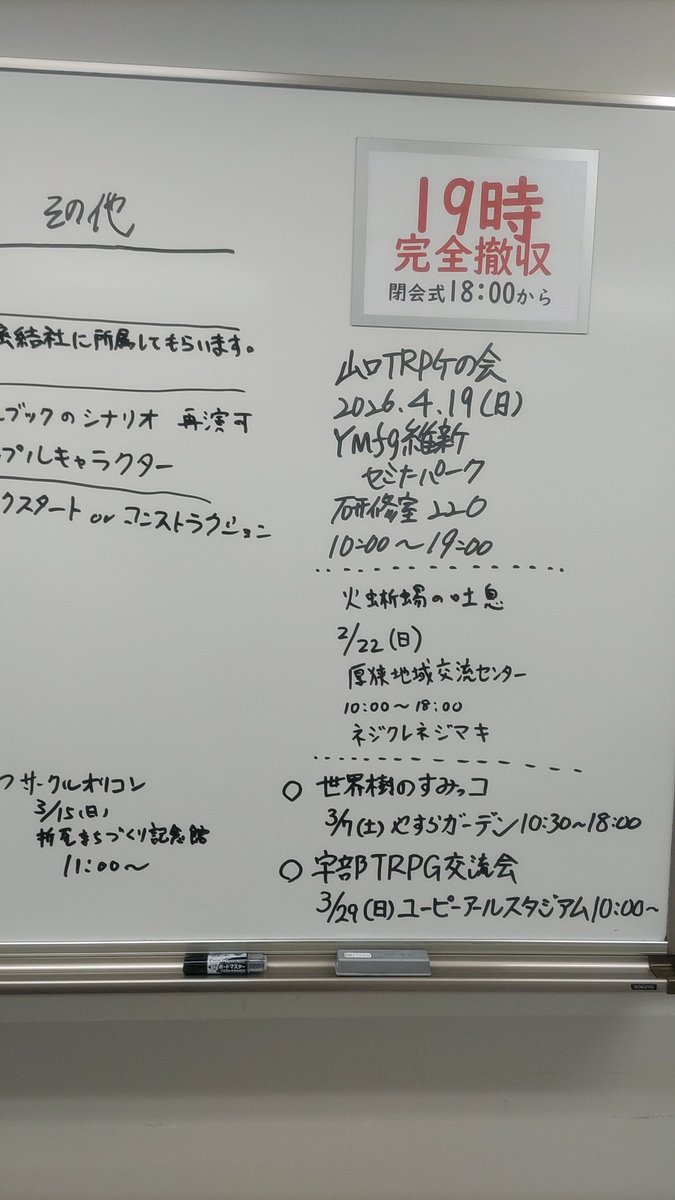 その他
結社に所属してもらいます。
ブックのシナリオ 再演可
プルキャラクター
クスタート or コンストラクション
フサークルオリコン
3/15(日)
まちづくり記念館
11:00〜
19時
完全撤収
閉会式18:00から
山口TRPGの会
2026.4.19(日)
YMfg維新
セミナーパーク
研修室220
10:00〜19:00
火蜥蜴の吐息
2/22(日)
厚狭地域交流センター
10:00〜18:00
ネジクレネジマキ
○ 世界樹のすみっコ
3/7(土)やすらガーデン10:30〜18:00
○ 宇部TRPG交流会
3/29(日)ユーピーアールスタジアム10:00〜
ボードマスター
KOKUYO